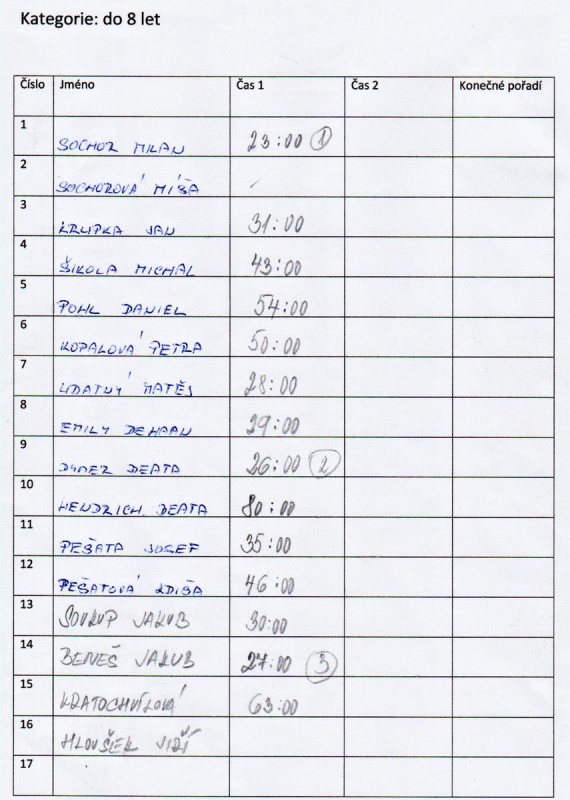 Kategorie: do 8 let
Číslo Jméno Čas 1 Čas 2 Konečné pořadí
1 SOCHOR MILAN 23:00 1
2 SOCHOROVÁ MÍŠA
3 KRUPKA JAN 31:00
4 ŠIKOLA MICHAL 43:00
5 POHL DANIEL 54:00
6 KOPALOVÁ PETRA 50:00
7 UDATNÝ MATĚJ 28:00
8 EMILY DEHAAN 29:00
9 BEATA 26:00 2
10 HENDRICH. BEATA 80:00
11 PEŠATA JOSEF 35:00
12 PEŠATOVÁ 46:00
13 SOUKUP JAKUB 30:00
14 BENEŠ JAKUB 27:00 3
15 KRATOCHVÍLOVÁ 63:00
16 HLOUŠEK JIŘÍ
17